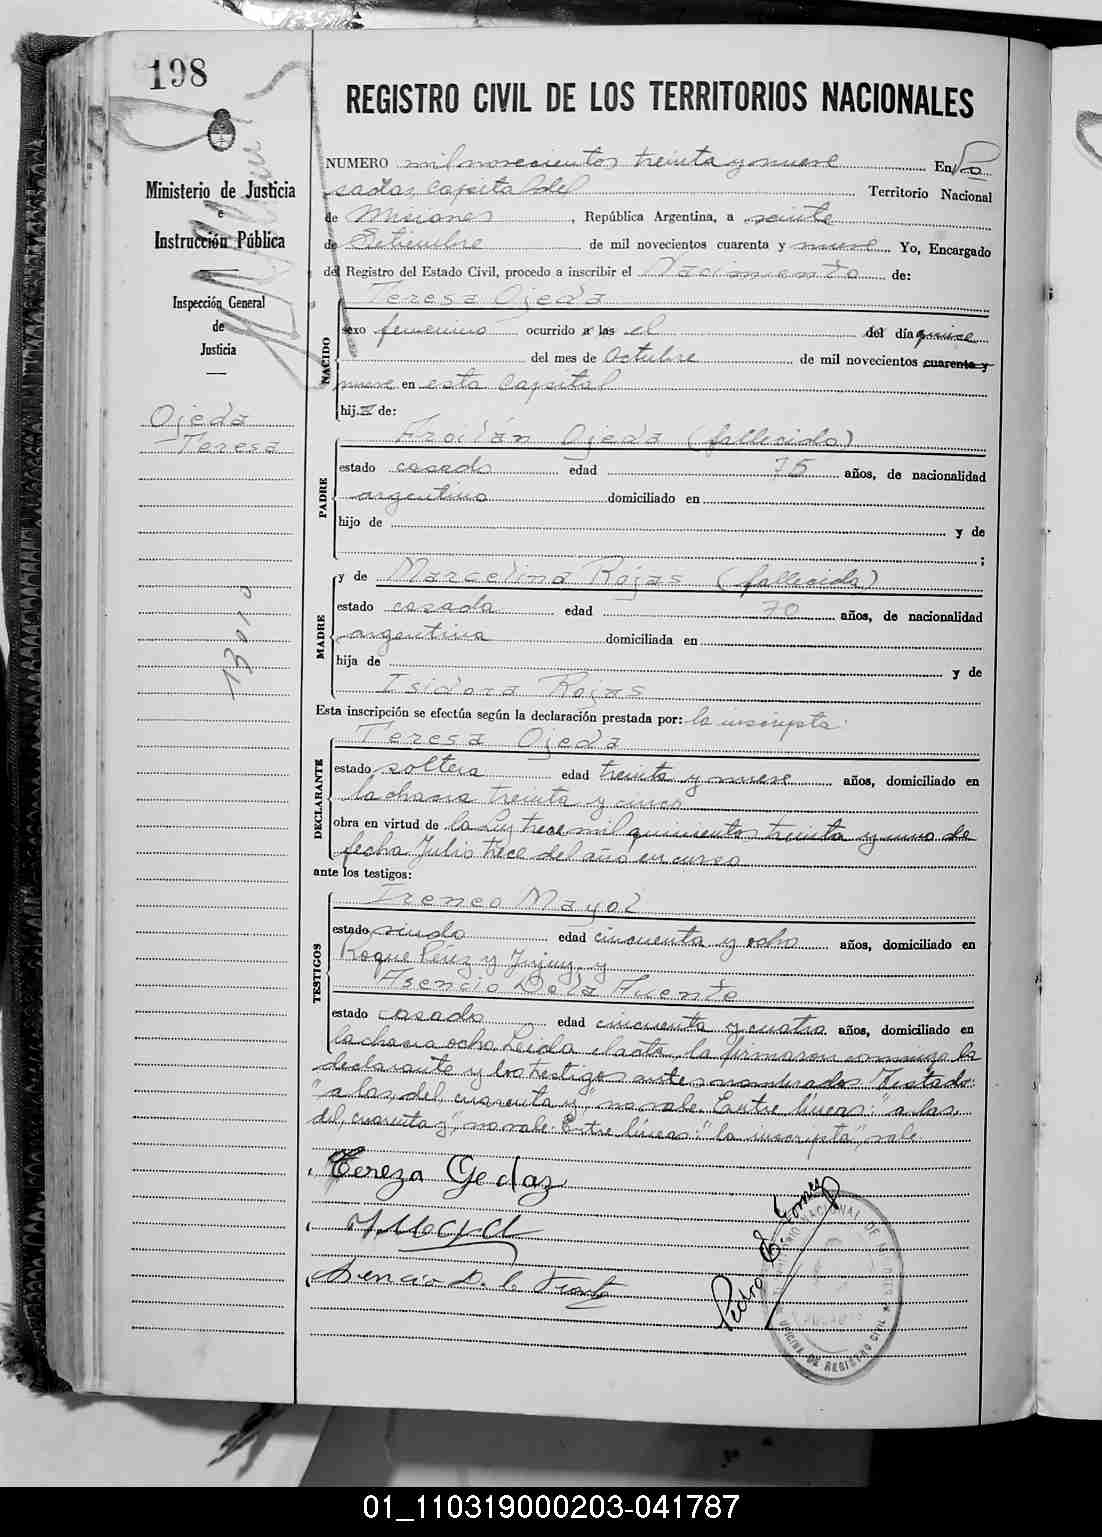 198
REGISTRO CIVIL DE LOS TERRITORIOS NACIONALES
Ministerio de Justicia
e
Instrucción Pública
Inspección General
de
Justicia
Ojeda
Teresa
NUMERO mil novecientos treinta y nueve En Po
sadas, capital del Territorio Nacional
de Misiones, República Argentina, a veinte
de Setiembre de mil novecientos cuarenta y nueve Yo, Encargado
del Registro del Estado Civil, procedo a inscribir el Nacimiento de:
Teresa Ojeda
NACIDO
sexo femenino ocurrido a las el del día quince
del mes de Octubre de mil novecientos cuarenta y
nueve en esta Capital
hij a de:
PADRE
Froilán Ojeda (fallecido)
estado casado edad 75 años, de nacionalidad
argentino domiciliado en
hijo de y de
;
MADRE
y de Marcelina Rojas (fallecida)
estado casada edad 70 años, de nacionalidad
argentina domiciliada en
hija de y de
Isidora Rojas
Esta inscripción se efectúa según la declaración prestada por: la inscripta
DECLARANTE
Teresa Ojeda
estado soltera edad treinta y nueve años, domiciliado en
la chacra treinta y cinco
obra en virtud de la Ley trece mil quinientos treinta y uno de
fecha Julio trece del año en curso
ante los testigos:
TESTIGOS
Ireneo Mayol
estado viudo edad cincuenta y ocho años, domiciliado en
Roque Pérez y Jujuy, y
Asencio Dela Fuente
estado casado edad cincuenta y cuatro años, domiciliado en
la chacra ocho. Leida el acta, la firmaron conmigo la
declarante y los testigos antes nombrados. Testado:
"a las, del, cuarenta y," no vale. Entre líneas: "a las,
del, cuarenta y", no vale. Entre líneas: "la inscripta", vale
Tereza Ojedaz
I. Mayol
Asencio D. la Fuente
Pedro E. Gomez
OFICINA DE REGISTRO CIVIL
01_110319000203-041787